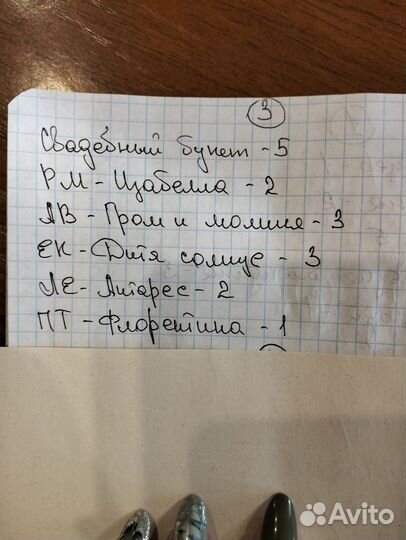 3
Свадебный букет - 5
РМ - Изабелла - 2
АВ - Гром и молния - 3
ЕК - Дитя солнце - 3
ЛЕ - Антарес - 2
ПТ - Флорентина - 1
Avito